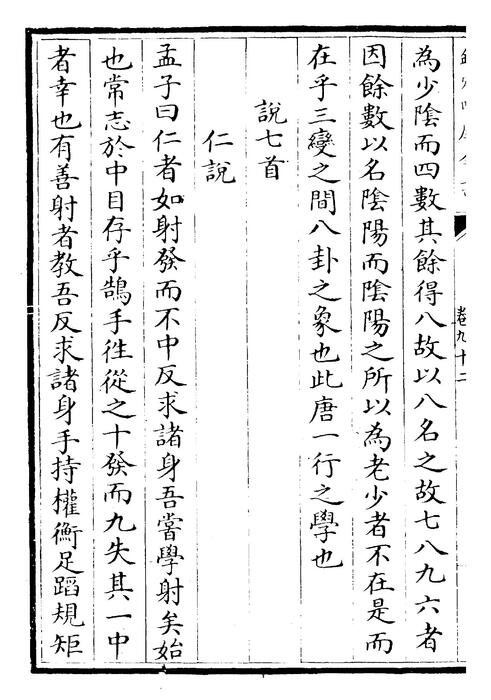 卷九十二
為少陰而四數其餘得八故以八名之故七八九六者
因餘數以名陰陽而陰陽之所以為老少者不在是而
在乎三變之間八卦之象也此唐一行之學也
說七首
仁說
孟子曰仁者如射發而不中反求諸身吾嘗學射矣始
也常志於中目存乎鵠手往從之十發而九失其一中
者幸也有善射者教吾反求諸身手持權衡足蹈規矩